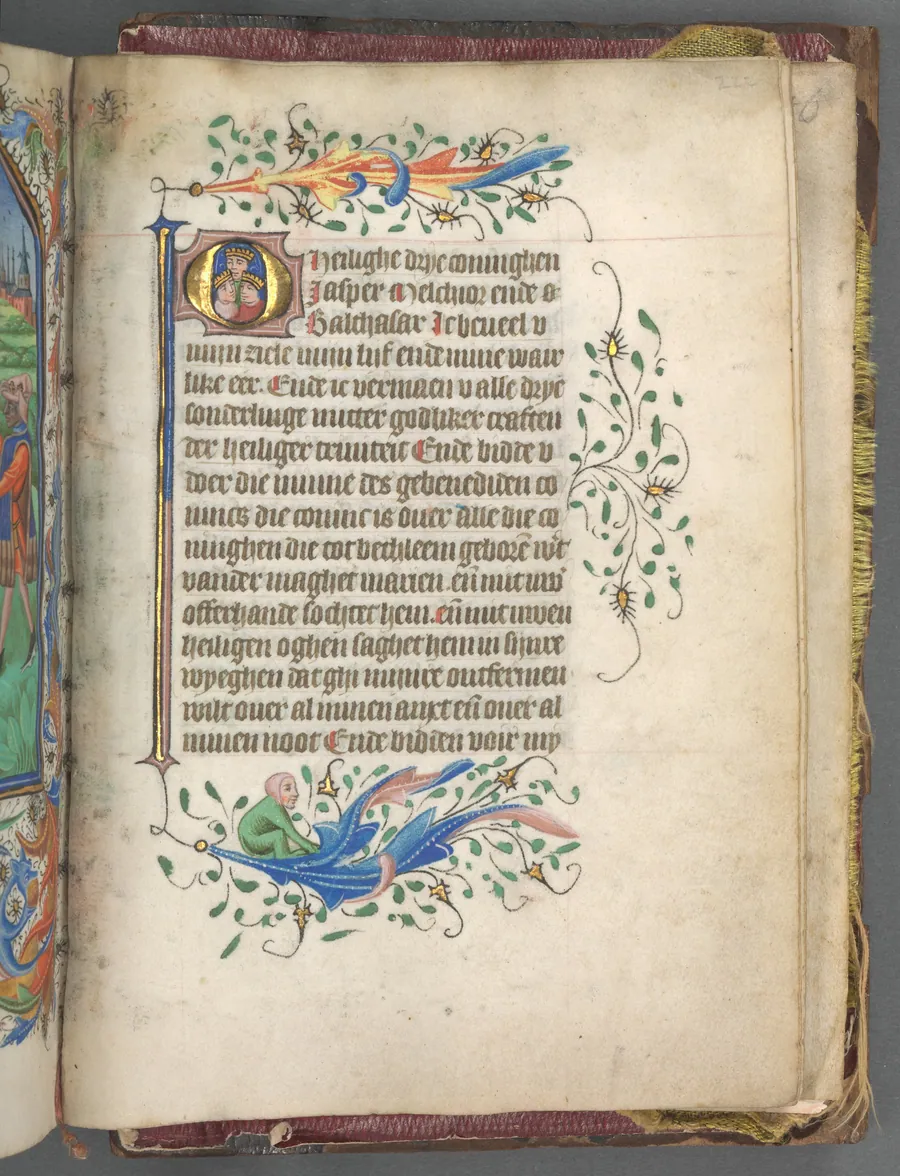 O heilighe drye coninghen
Jasper Melchior ende o
Balthasar Ic beueel v
mijn ziele mijn lijf ende mine wær
like eer. Ende ic vermaen v alle drye
sonderlinge mitter godliker craften
der heiliger triniteit Ende bidde v
doer die minne des gebenediden co
nincs die coninc is ouer alle die co
ninghen die tot bethleem geborē wt
vander maghet marien. eñ mit uwē
offerhande sochtet hem. eñ mit uwen
heiligen oghen saghet hem in sijnre
wyeghen dat ghi mijnre ontfermen
wilt ouer al minen anxt eñ ouer al
minen noot Ende bidden voir mij